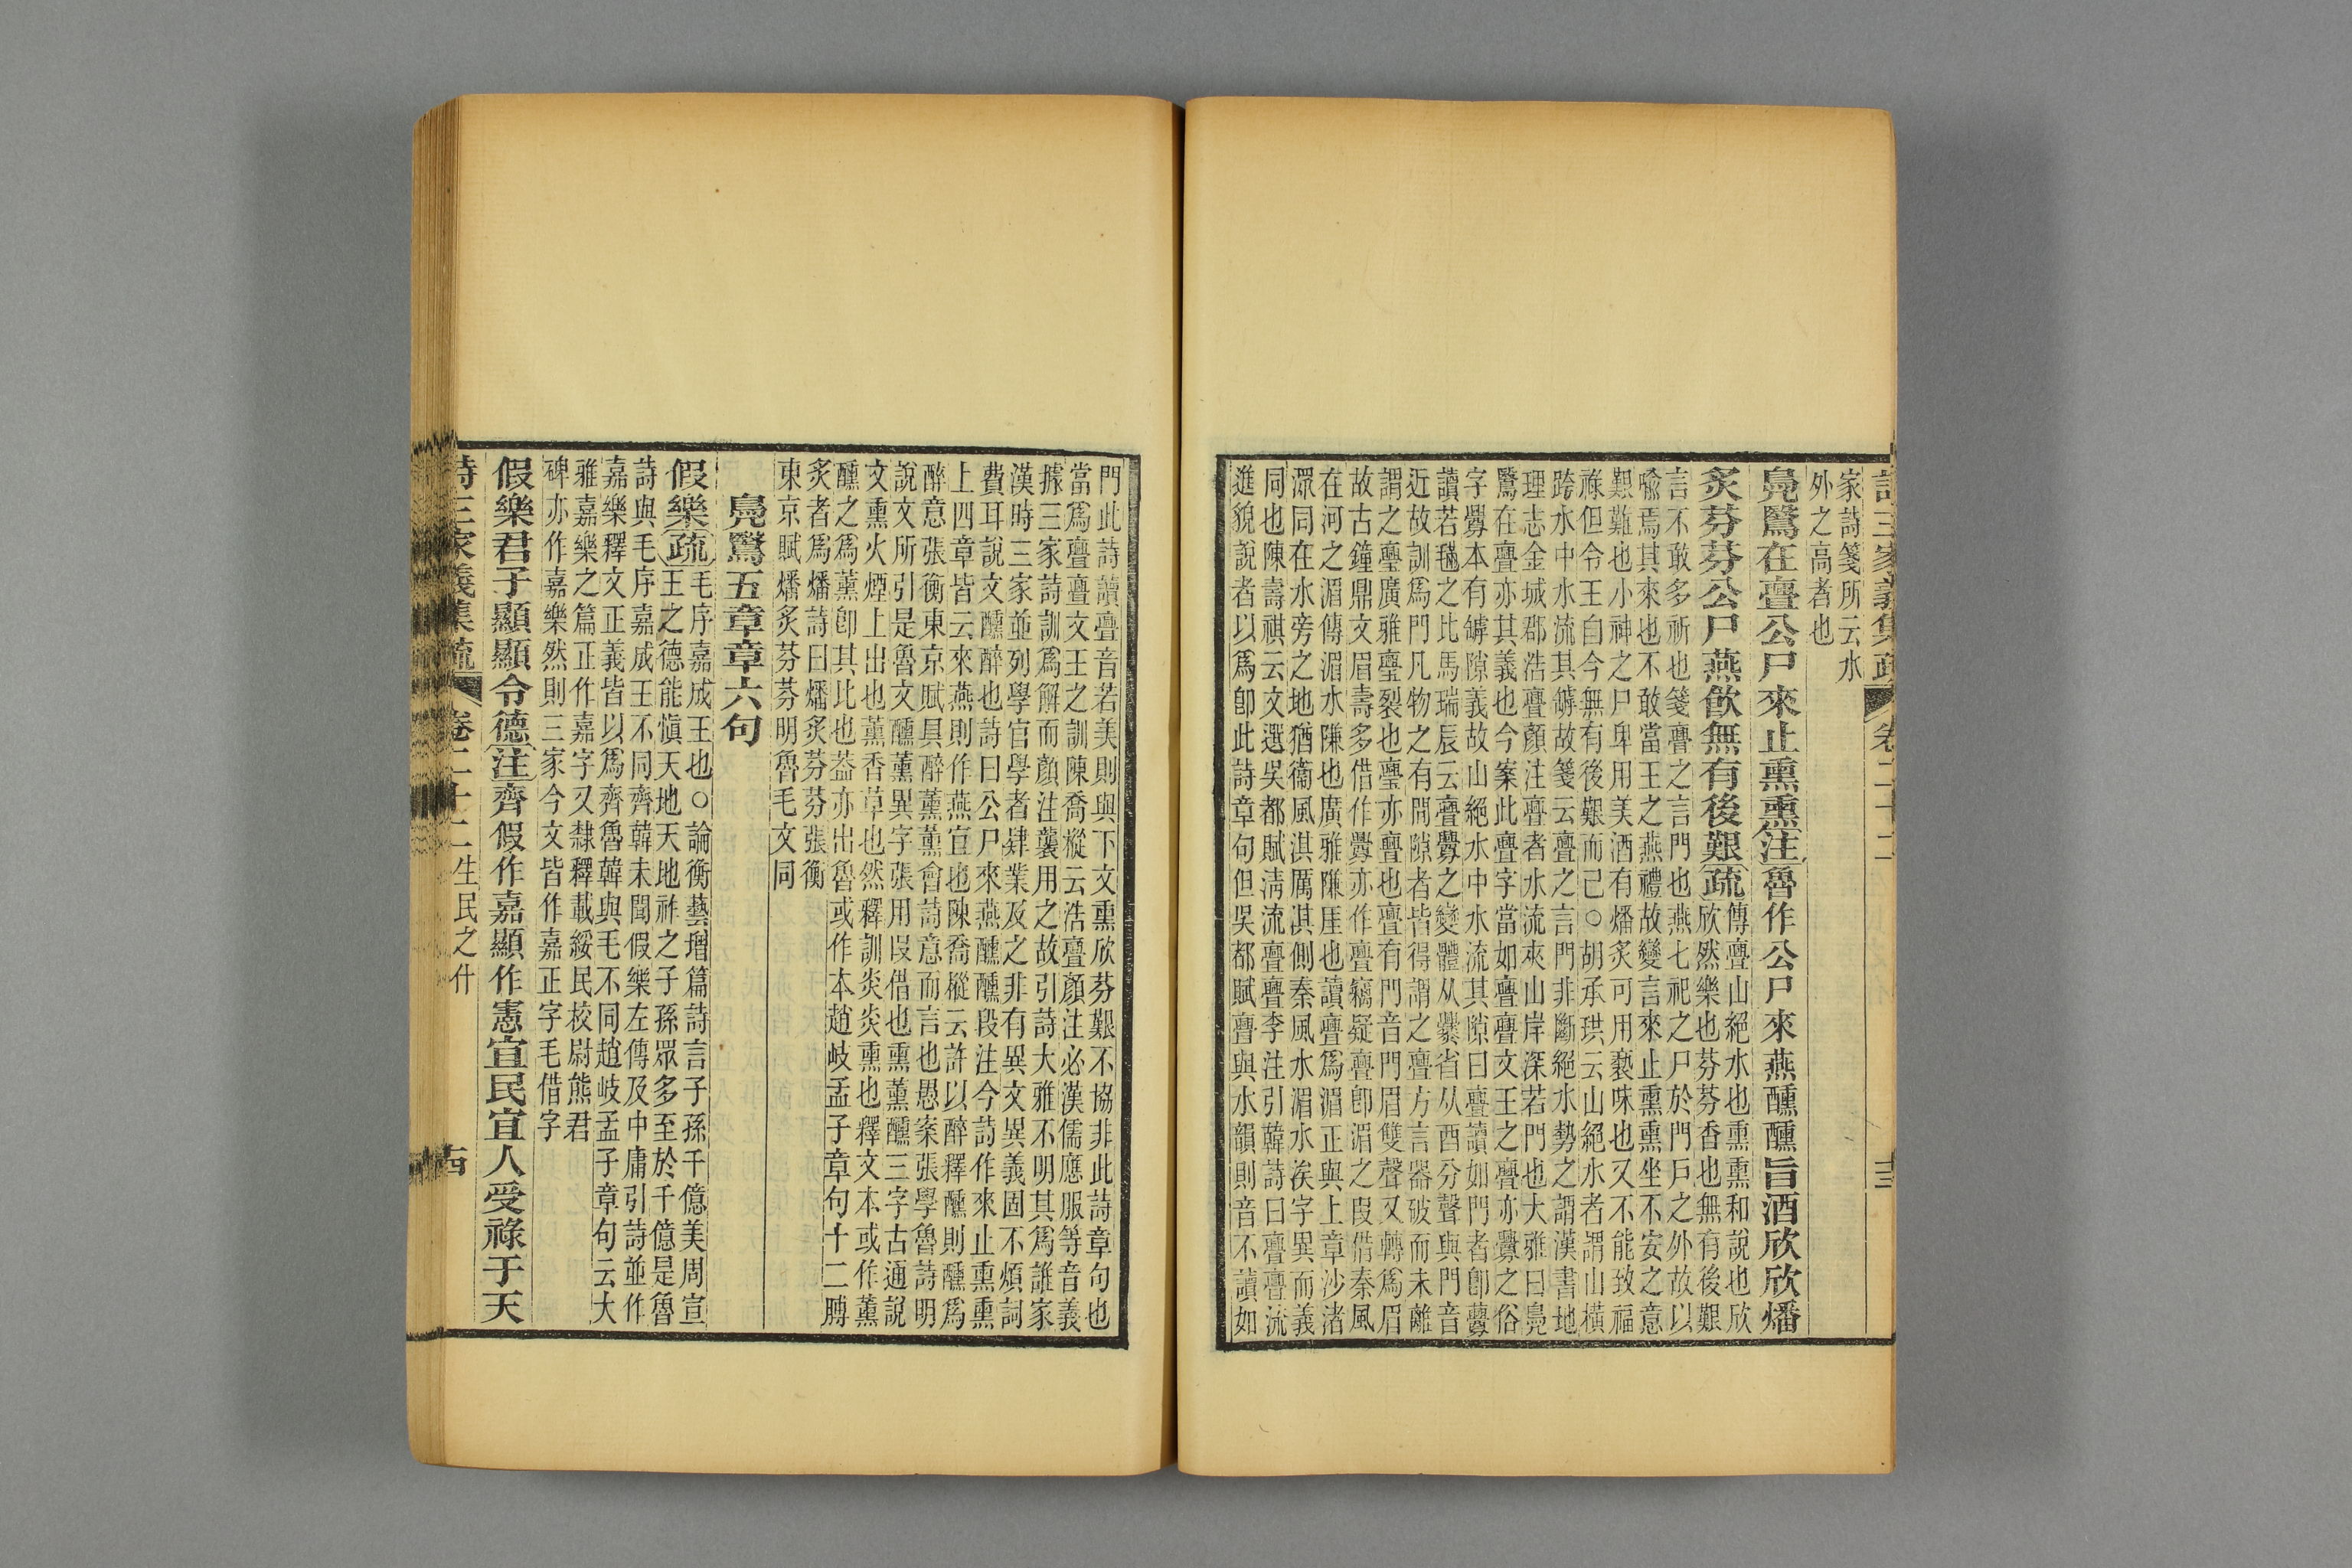 詩三家義集疏 卷二十二 十三
家詩箋所云水
外之高者也
鳧鷖在亹公尸來止熏熏注魯作公尸來燕醺醺旨酒欣欣燔
炙芬芬公尸燕飲無有後艱疏傳亹山絕水也熏熏和說也欣
欣然樂也芬芬香也無有後艱
言不敢多祈也箋亹之言門也燕七祀之尸於門戶之外故以
喻焉其來也不敢當王之燕禮故變言來止熏熏坐不安之意
艱難也小神之尸卑用美酒有燔炙可用褻味也又不能致福
祿但令王自今無有後艱而已○胡承珙云山絕水者謂山橫
跨水中水流其罅故箋云亹之言門非斷絕水勢之謂漢書地
理志金城郡浩亹顏注亹者水流夾山岸深若門也大雅曰鳧
鷖在亹亦其義也今案此亹字當如亹亹文王之亹亦釁之俗
字釁本有罅隙義故山絕水中水流其隙曰亹讀如門者卽虋
讀若虋之比馬瑞辰云亹釁之變體从爨省从酉分聲與門音
近故訓爲門凡物之有間隙者皆得謂之亹方言器破而未離
謂之璺廣雅璺裂也璺亦亹也亹有門音門眉雙聲又轉爲眉
故古鐘鼎文眉壽多借作釁亦作亹竊疑亹卽湄之叚借秦風
在河之湄傳湄水隒也廣雅隒厓也讀亹爲湄正與上章沙渚
潀同在水旁之地猶衞風淇厲淇側秦風水湄水涘字異而義
同也陳壽祺云文選吳都賦淸流亹亹李注引韓詩曰亹亹流
進貌說者以爲卽此詩章句但吳都賦亹與水韻則音不讀如
門此詩讀亹音若美則與下文熏欣芬艱不協非此詩章句也
當爲亹亹文王之訓陳喬樅云浩亹顏注必漢儒應服等音義
據三家詩訓爲解而顏注襲用之故引詩大雅不明其爲誰家
漢時三家並列學官學者肄業及之非有異文異義固不煩詞
費耳說文醺醉也詩曰公尸來燕醺醺段注今詩作來止熏熏
上四章皆云來燕則作燕宜也陳喬樅云許以醉釋醺則醺爲
醉意張衡東京賦具醉薰薰會詩意而言也愚案張學魯詩明
說文所引是魯文醺薰異字張用叚借也熏薰醺三字古通說
文熏火煙上出也薰香草也然釋訓炎炎熏也釋文本或作薰
醺之爲薰卽其比也葢亦出魯或作本趙岐孟子章句十二膊
炙者爲燔詩曰燔炙芬芬張衡
東京賦燔炙芬芬明魯毛文同
鳧鷖五章章六句
假樂疏毛序嘉成王也○論衡藝增篇詩言子孫千億美周宣
王之德能愼天地天地祚之子孫眾多至於千億是魯
詩與毛序嘉成王不同齊韓未聞假樂左傳及中庸引詩並作
嘉樂釋文正義皆以爲齊魯韓與毛不同趙岐孟子章句云大
雅嘉樂之篇正作嘉字又隸釋載綏民校尉熊君
碑亦作嘉樂然則三家今文皆作嘉正字毛借字
假樂君子顯顯令德注齊假作嘉顯作憲宜民宜人受祿于天
詩三家義集疏 卷二十二 生民之什 十四